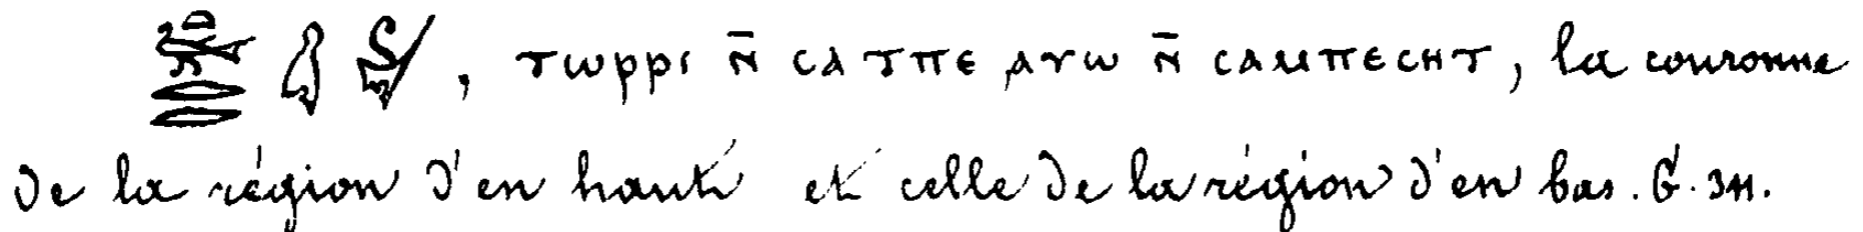 , ⲧⲱⲣⲣⲓ ⲛ̄ ⲥⲁ ⲧⲡⲉ ⲁⲩⲱ ⲛ̄ ⲥⲁⲙⲡⲉⲥⲏⲧ, la couronne
de la région d'en haut et celle de la région d'en bas.